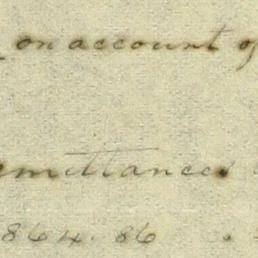 on account of
emittances
864.86